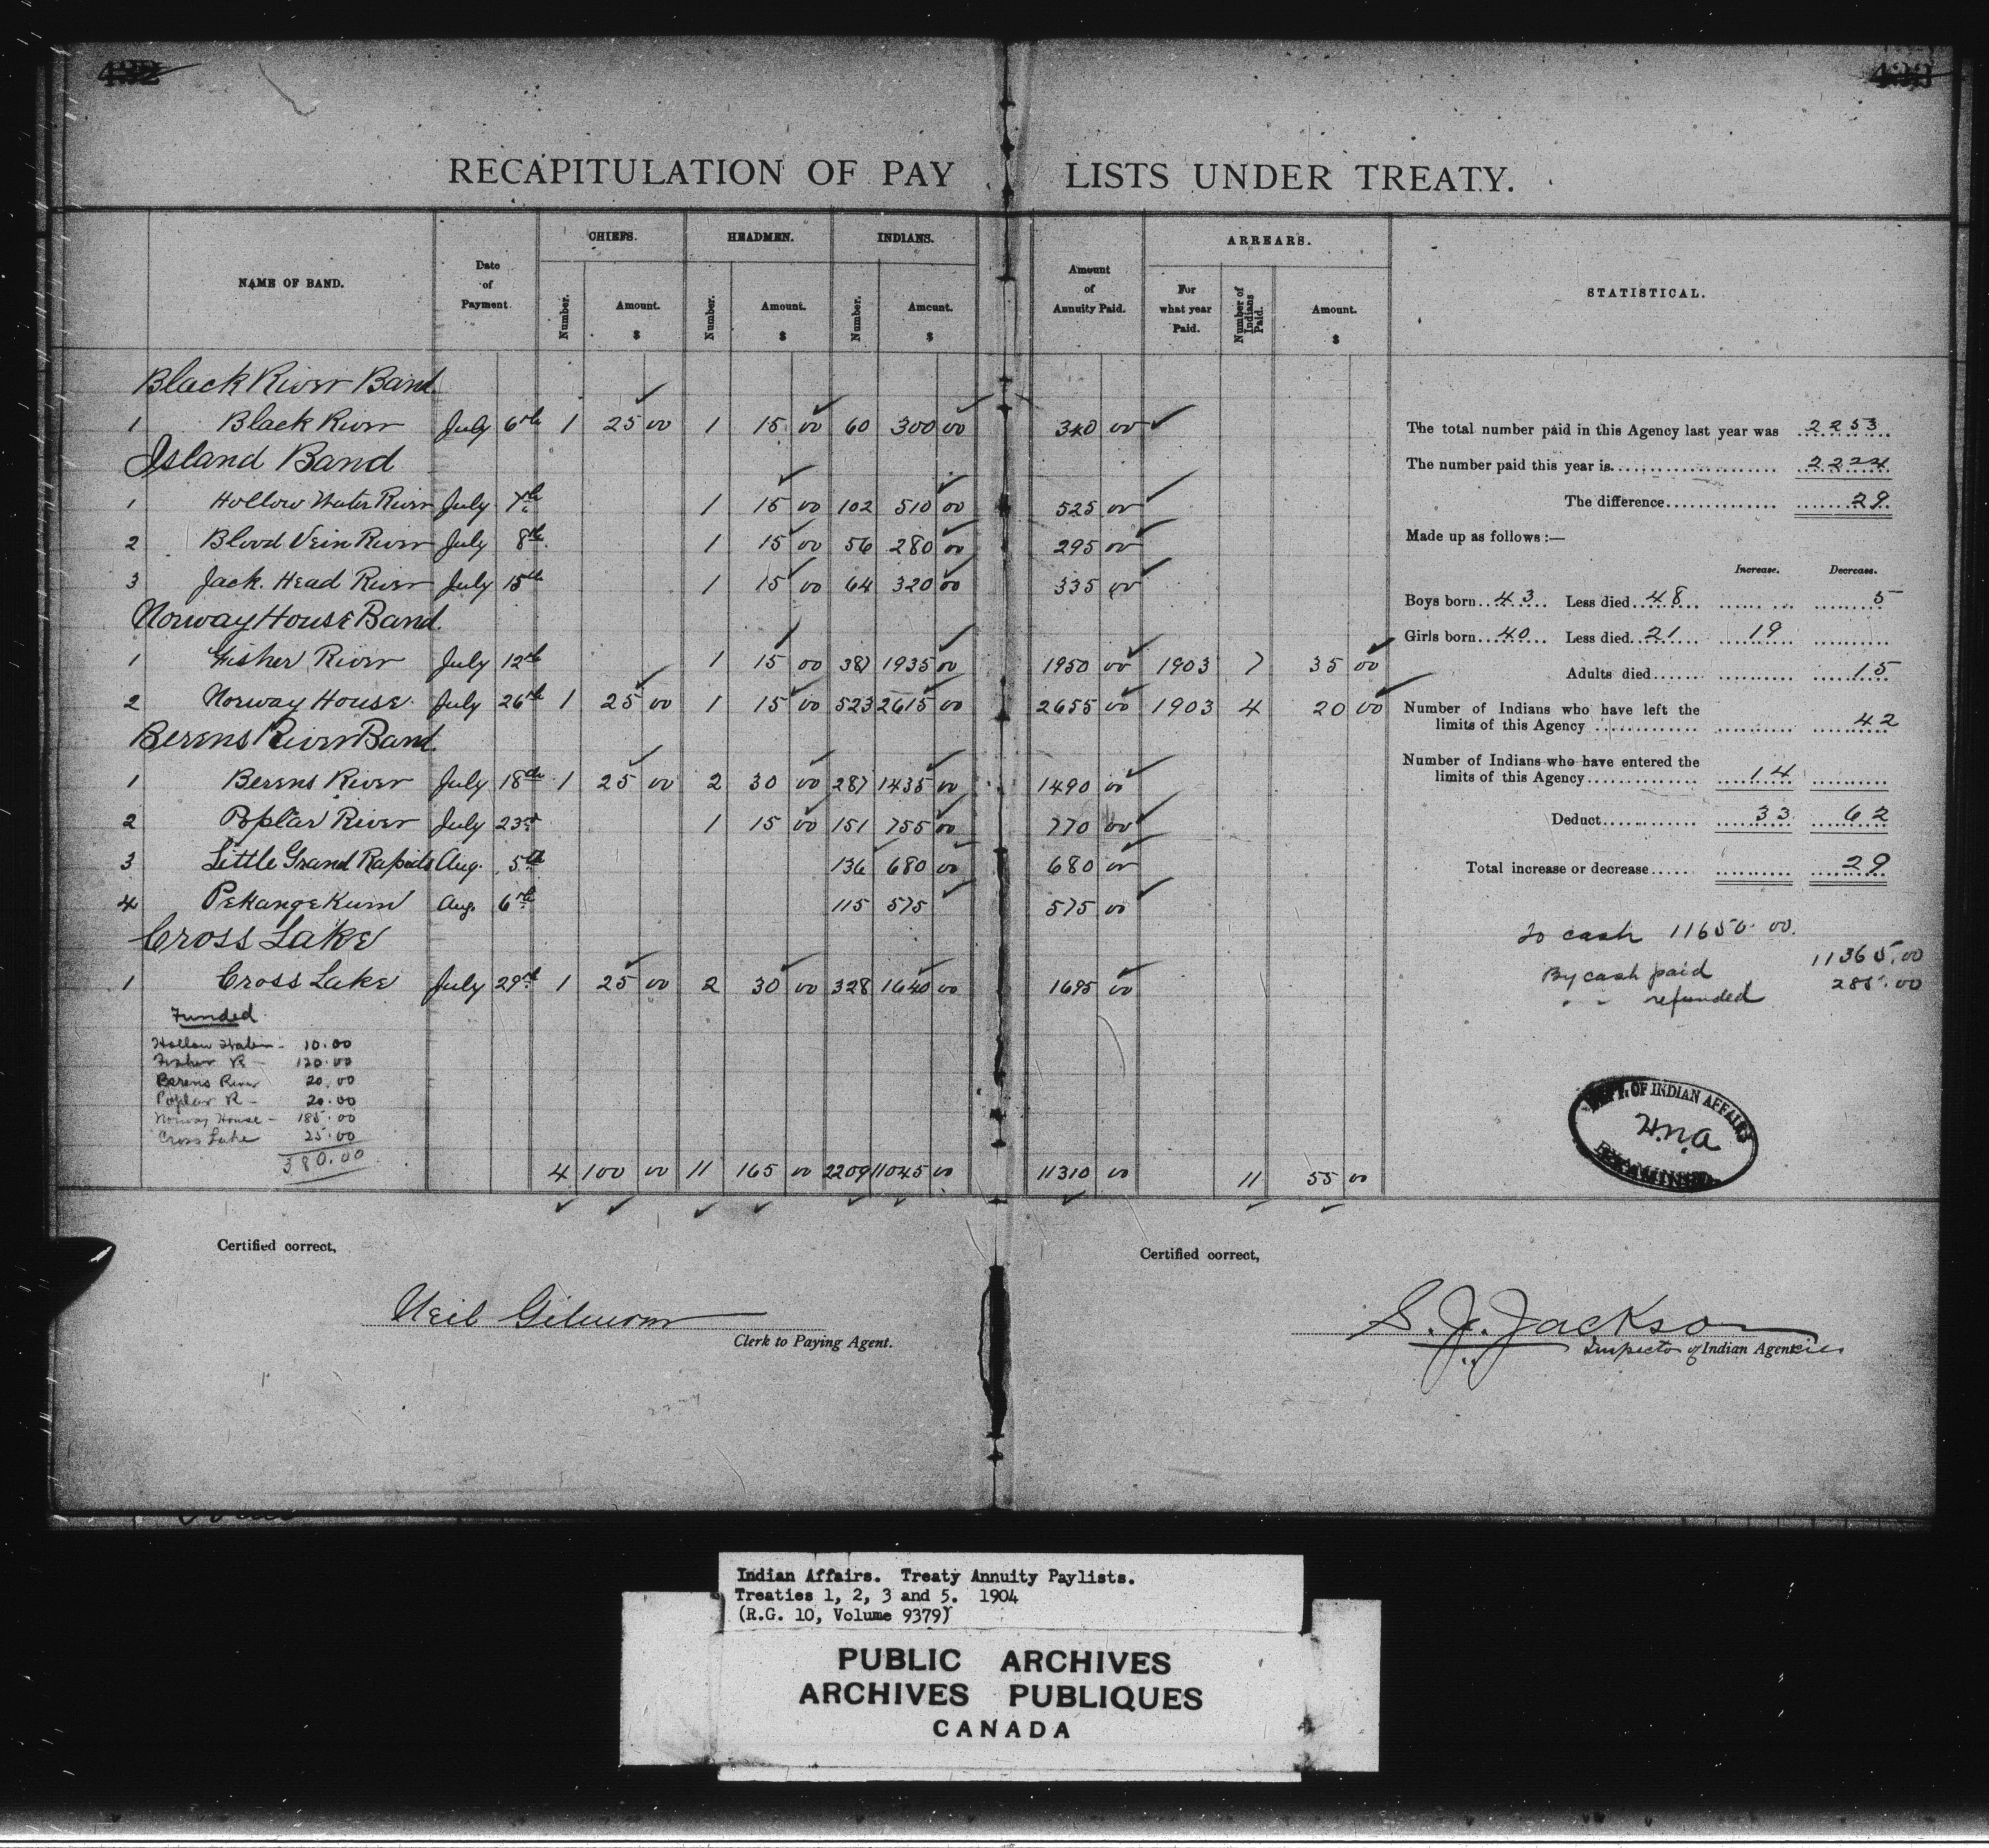 RECAPITULATION OF PAY LISTS UNDER TREATY.
NAME OF BAND. Date of Payment. CHIEFS. HEADMEN. INDIANS. Amount of Annuity Paid. ARREARS. STATISTICAL.
Number. Amount. $ Number. Amount. $ Number. Amount. $ For what year Paid. Number of Indians Paid. Amount. $
Black River Band.
1 Black River July 6th 1 25 00 1 15 00 60 300 00 340 00
Island Band
1 Hollow Water River July 7th 1 15 00 102 510 00 525 00
2 Blood Vein River July 8th 1 15 00 56 280 00 295 00
3 Jack. Head River July 15th 1 15 00 64 320 00 335 00
Norway House Band.
1 Fisher River July 12th 1 15 00 387 1935 00 1950 00 1903 7 35 00
2 Norway House July 26th 1 25 00 1 15 00 523 2615 00 2655 00 1903 4 20 00
Berens River Band.
1 Berens River July 18th 1 25 00 2 30 00 287 1435 00 1490 00
2 Poplar River July 23rd 1 15 00 151 755 00 770 00
3 Little Grand Rapids Aug. 5th 136 680 00 680 00
4 Pekangekum Aug. 6th 115 575 575 00
Cross Lake
1 Cross Lake July 29th 1 25 00 2 30 00 328 1640 00 1695 00
Funded
Hollow Water - 10.00
Fisher R - 120.00
Berens River 20.00
Poplar R - 20.00
Norway House - 185.00
Cross Lake 25.00
380.00
4 100 00 11 165 00 2209 11045 00 11310 00 11 55 00
The total number paid in this Agency last year was 2253
The number paid this year is 2224
The difference 29
Made up as follows :—
Increase. Decrease.
Boys born 43 Less died 48 5
Girls born 40 Less died 21 19
Adults died 15
Number of Indians who have left the
limits of this Agency 42
Number of Indians who have entered the
limits of this Agency 14
Deduct 33 62
Total increase or decrease 29
To cash 11650.00.
By cash paid 11365.00
" " refunded 285.00
DEPT. OF INDIAN AFFAIRS
EXAMINED
Certified correct,
Neil Gilmour
Clerk to Paying Agent.
Certified correct,
S. J. Jackson
Inspector of Indian Agencies
Indian Affairs. Treaty Annuity Paylists.
Treaties 1, 2, 3 and 5. 1904
(R.G. 10, Volume 9379)
PUBLIC ARCHIVES
ARCHIVES PUBLIQUES
CANADA